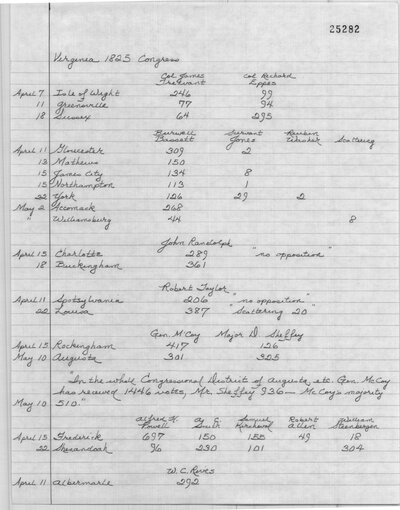 25282
Virginia 1825 Congress
Col. James Trezvant Col Richard Eppes
April 7 Isle of Wight 246 99
11 Greensville 77 94
18 Sussex 64 295
Burwell Bassett Servant Jones Reuben Scattering
April 11 Gloucester 309 2
13 Mathews 150
15 James City 134 8
15 Northampton 113 1
22 York 126 29 2
May 2 Accomack 268
" Williamsburg 44 8
John Randolph
April 15 Charlotte 289 "no opposition"
18 Buckingham 361
Robert Taylor
April 11 Spotsylvania 206 "no opposition"
22 Louisa 387 "Scattering 20"
Gen. McCoy Major D. Sheffey
April 15 Rockingham 417 126
May 10 Augusta 301 325
"In the whole Congressional District of Augusta, etc. Gen. McCoy
has received 1446 votes, Mr. Sheffey 936 — McCoy's majority
May 10 510."
Alfred H. Powell A. C. Smith Samuel Kercheval Robert Allen William Steenbergen
April 15 Frederick 697 150 155 49 18
22 Shenandoah 96 230 101 304
W. C. Rives
April 11 Albemarle 292